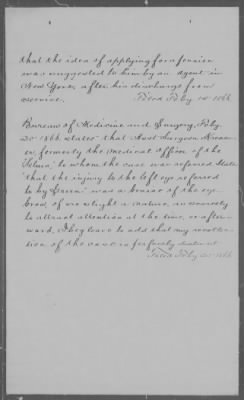 that the idea of applying for a pension
was suggested to him by an agent in
New York, after his discharge from
service.
Filed Feby 1st 1866
Bureau of Medicine and Surgery, Feby.
20' 1866 states "that Asst. Surgeon
formerly the medical officer of the
"Selma," to whom the case was referred states
"that the injury to the left eye referred
to by Green" was a bruise of the eye
brow, of so slight a nature, as scarcely
to attract attention at the time, or after-
ward. I beg leave to add that my recollec-
tion of the case is perfectly distinct.
Filed Feby 20' 1866